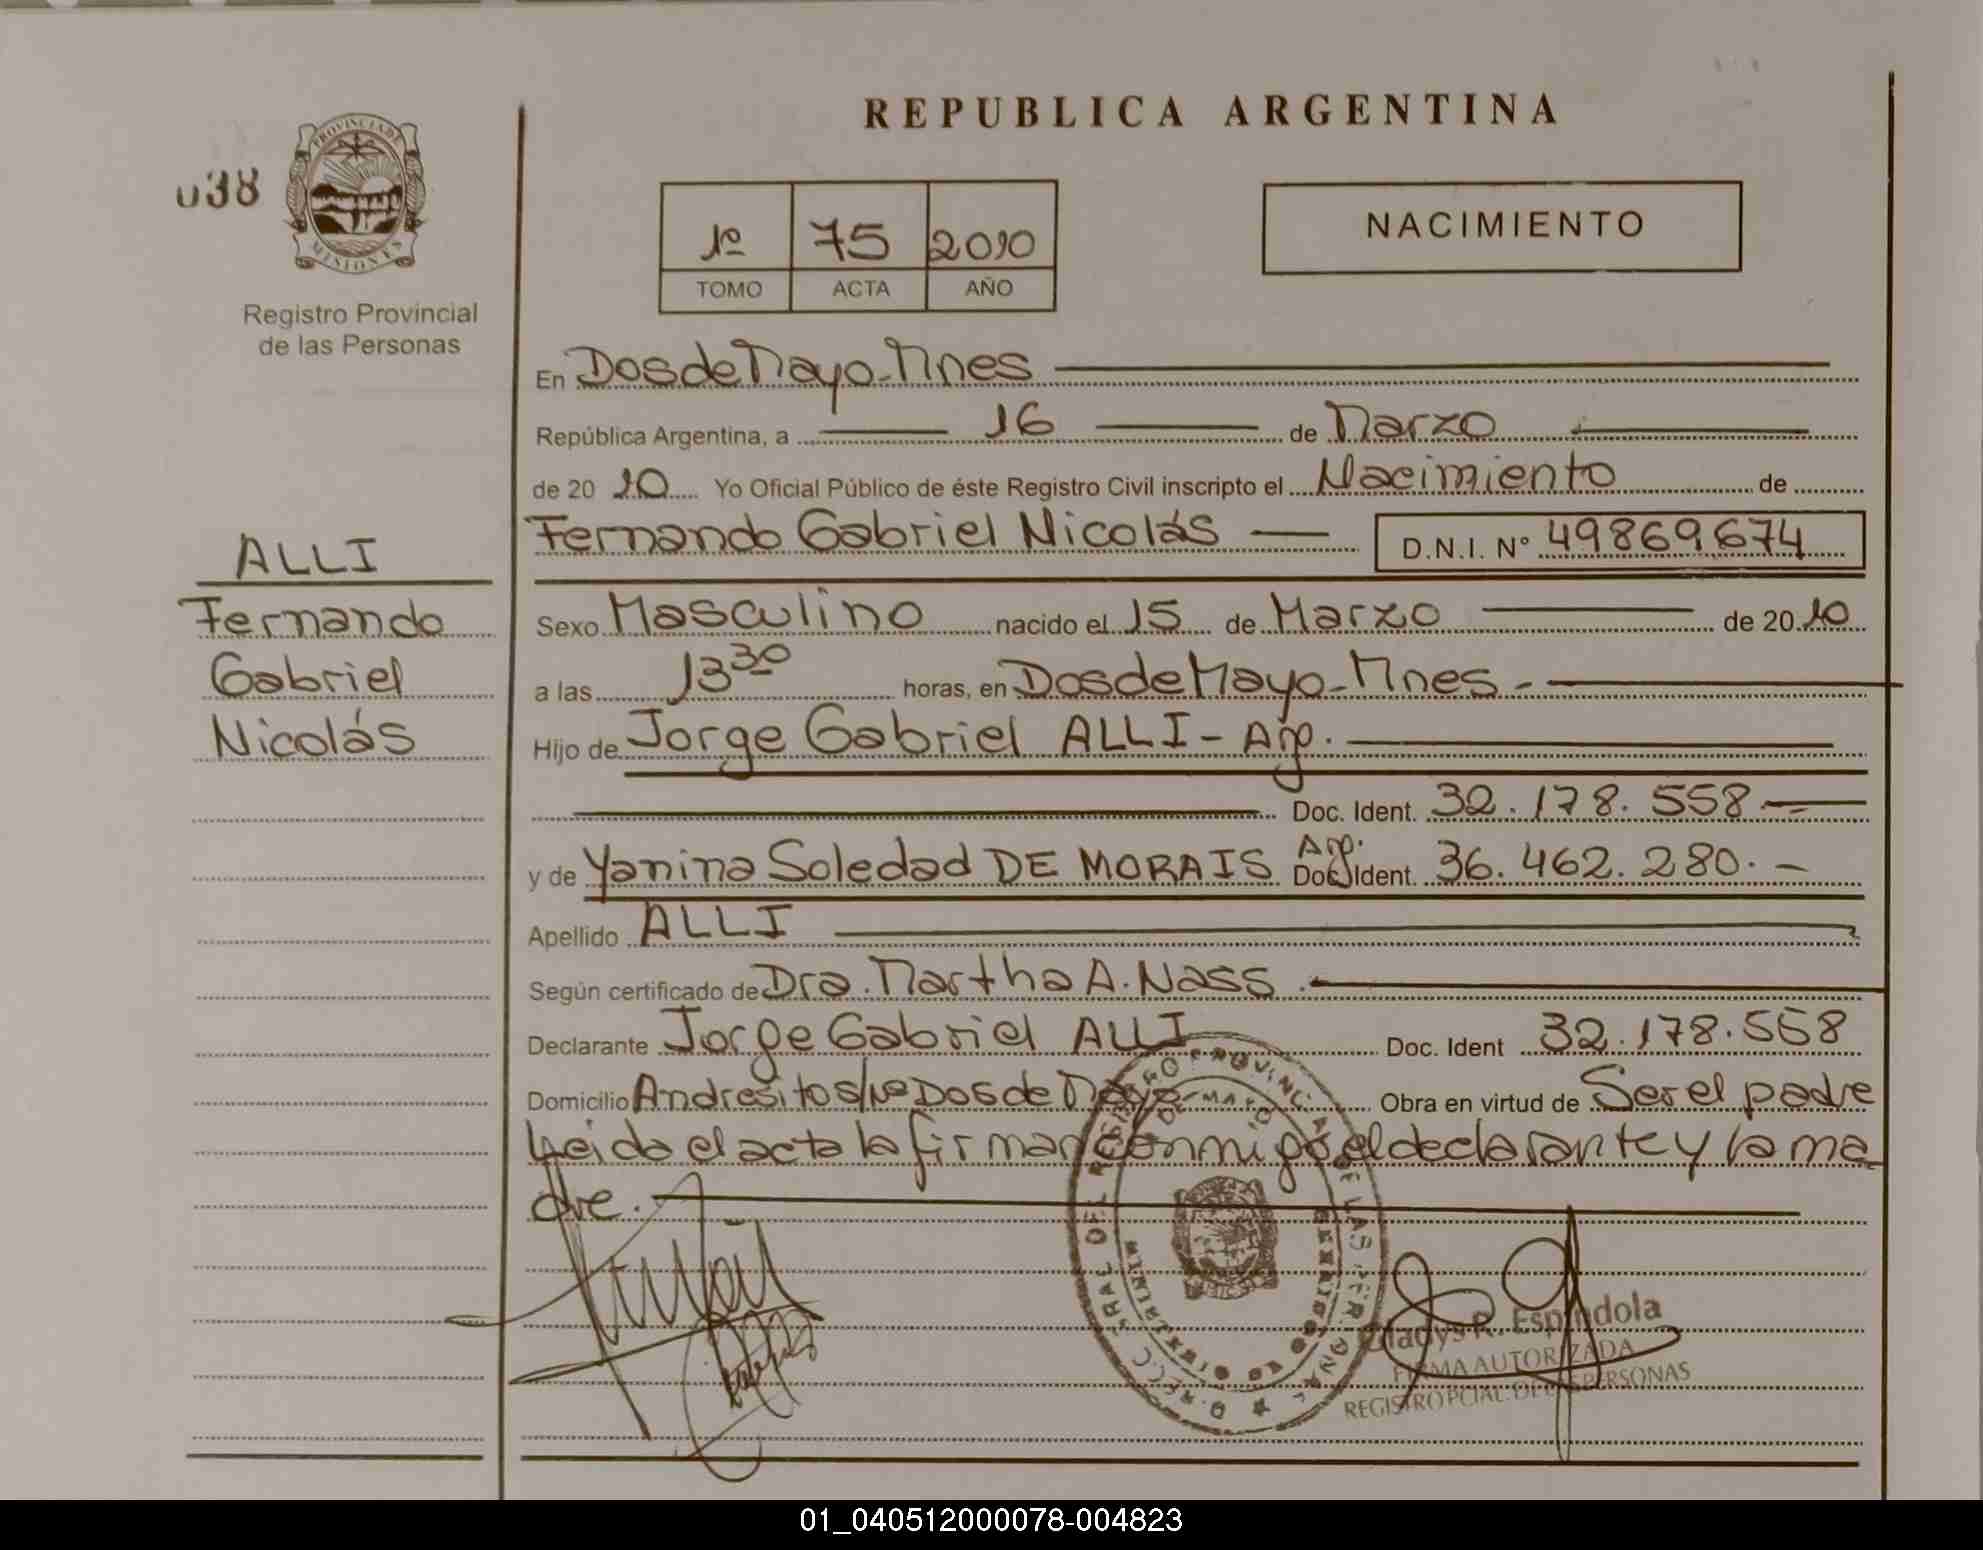 REPUBLICA ARGENTINA
038
PROVINCIA DE
MISIONES
Registro Provincial
de las Personas
1º 75 2010
TOMO ACTA AÑO
NACIMIENTO
En Dos de Mayo - Mnes
República Argentina, a 16 de Marzo
de 20 10 Yo Oficial Público de éste Registro Civil inscripto el Nacimiento de
Fernando Gabriel Nicolás D.N.I. Nº 49869674
ALLI
Fernando
Gabriel
Nicolás
Sexo Masculino nacido el 15 de Marzo de 20 10
a las 13 30 horas, en Dos de Mayo - Mnes -
Hijo de Jorge Gabriel ALLI - Arg.
y Doc. Ident. 32.178.558.-
y de Yanina Soledad DE MORAIS Arg. Doc. Ident. 36.462.280.-
Apellido ALLI
Según certificado de Dra. Martha A. Nass.
Declarante Jorge Gabriel ALLI Doc. Ident 32.178.558
Domicilio Andresito s/Nº Dos de Mayo Obra en virtud de Ser el padre
Leida el acta la firman conmigo el declarante y la ma
dre.
Gladys R. Espindola
FIRMA AUTORIZADA
REGISTRO PCIAL. DE LAS PERSONAS
01_040512000078-004823